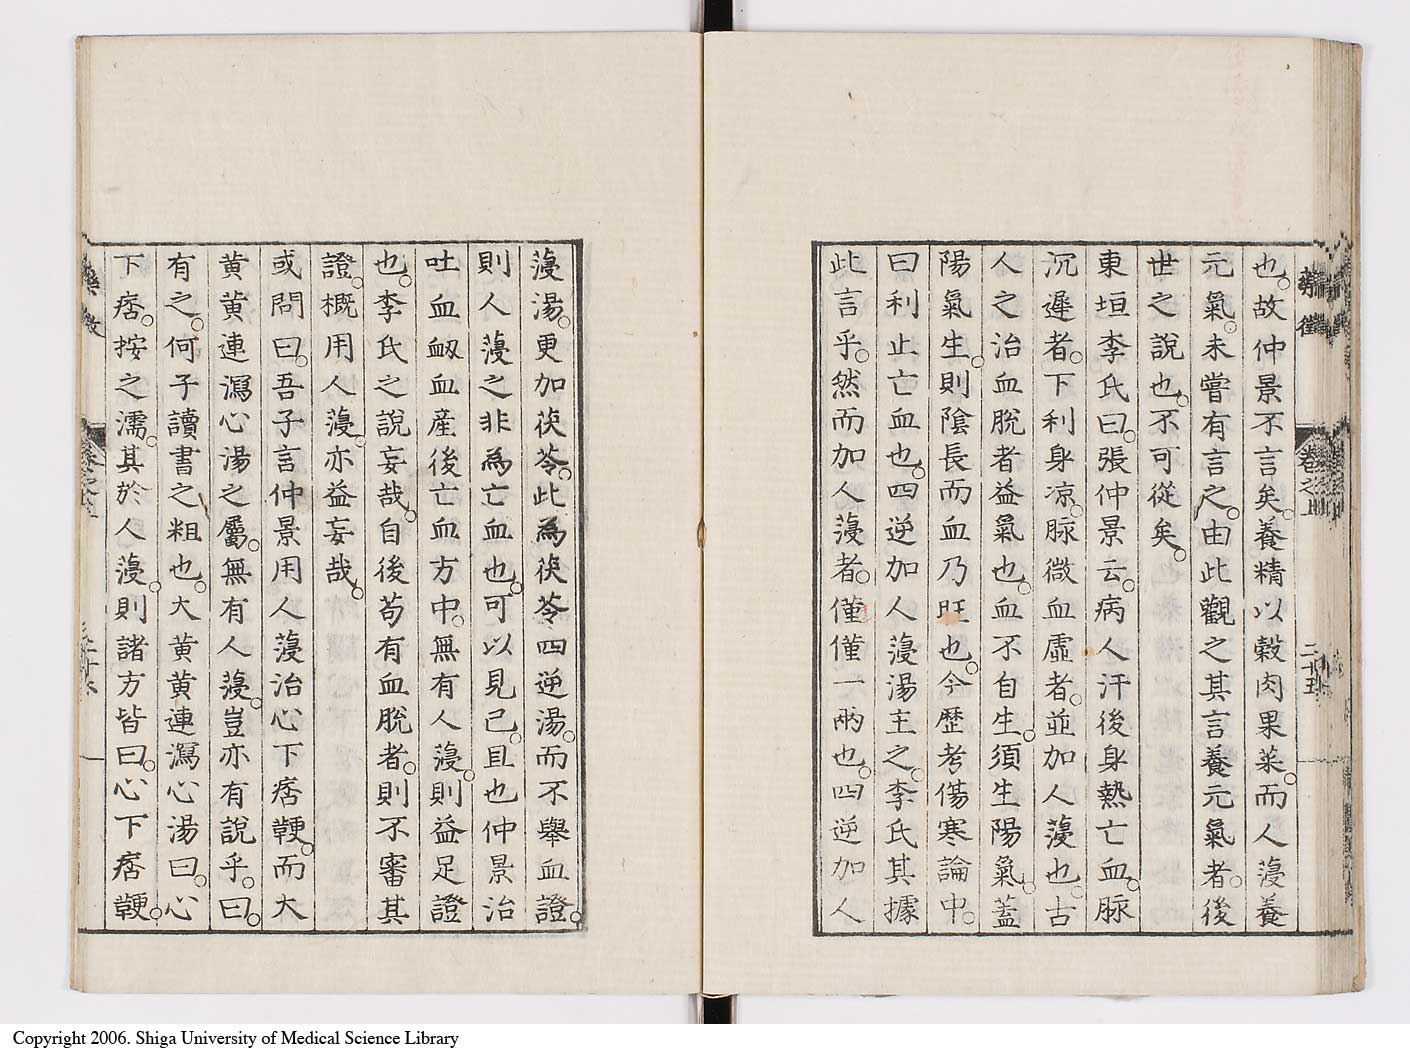 也。故仲景不言矣。養精以穀肉果菜。而人薓養
元氣。未嘗有言之。由此觀之其言養元氣者。後
世之說也。不可從矣。
東垣李氏曰。張仲景云。病人汗後身熱亡血。脈
沉遲者。下利身凉。脈微血虛者。並加人薓也。古
人之治血脫者益氣也。血不自生。須生陽氣。蓋
陽氣生。則陰長而血乃旺也。今歷考傷寒論中。
曰利止亡血也。四逆加人薓湯主之。李氏其據
此言乎。然而加人薓者。僅僅一兩也。四逆加人
薓湯。更加茯苓。此為茯苓四逆湯。而不舉血證。
則人薓之非為亡血也。可以見已。且也仲景治
吐血衂血產後亡血方中。無有人薓。則益足證
也。李氏之說妄哉。自後苟有血脫者。則不審其
證。概用人薓。亦益妄哉。
或問曰。吾子言仲景用人薓治心下痞鞕。而大
黃黃連瀉心湯之屬。無有人薓。豈亦有說乎。曰。
有之。何子讀書之粗也。大黃黃連瀉心湯曰。心
下痞。按之濡。其於人薓。則諸方皆曰。心下痞鞕。
藥徵
卷之上
二十五
Copyright 2006. Shiga University of Medical Science Library